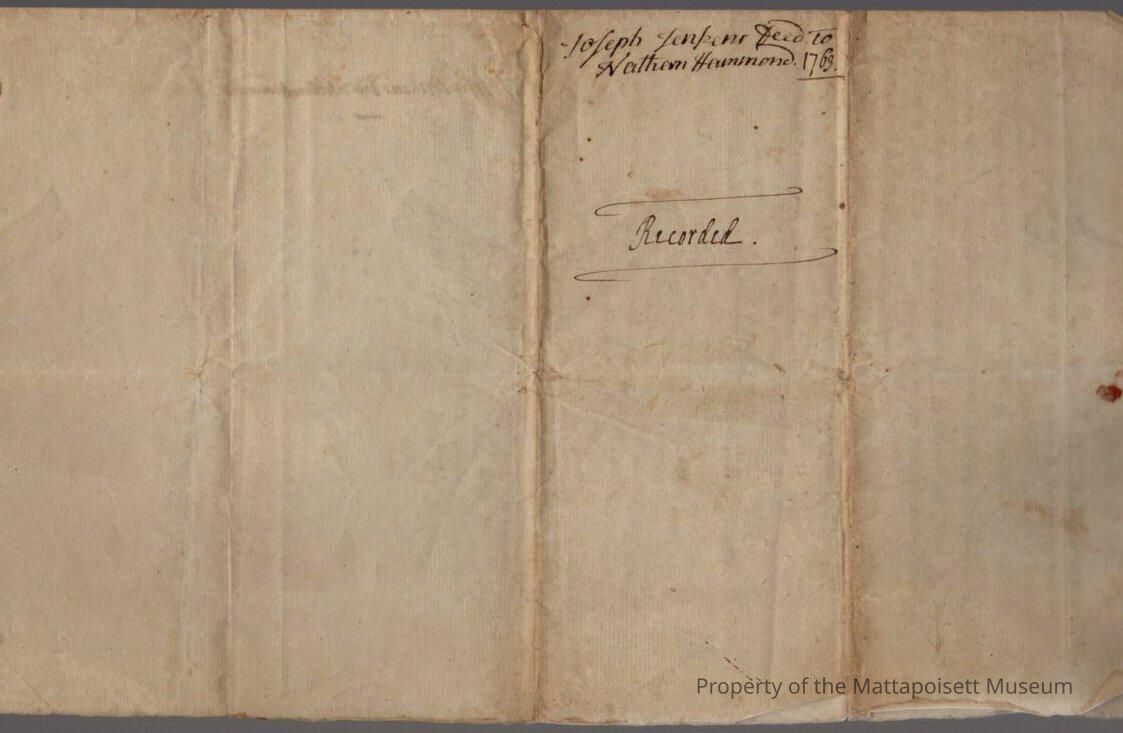 Joseph Jenkens Deed to
Nathan Hammond. 1769.
Recorded.
Property of the Mattapoisett Museum